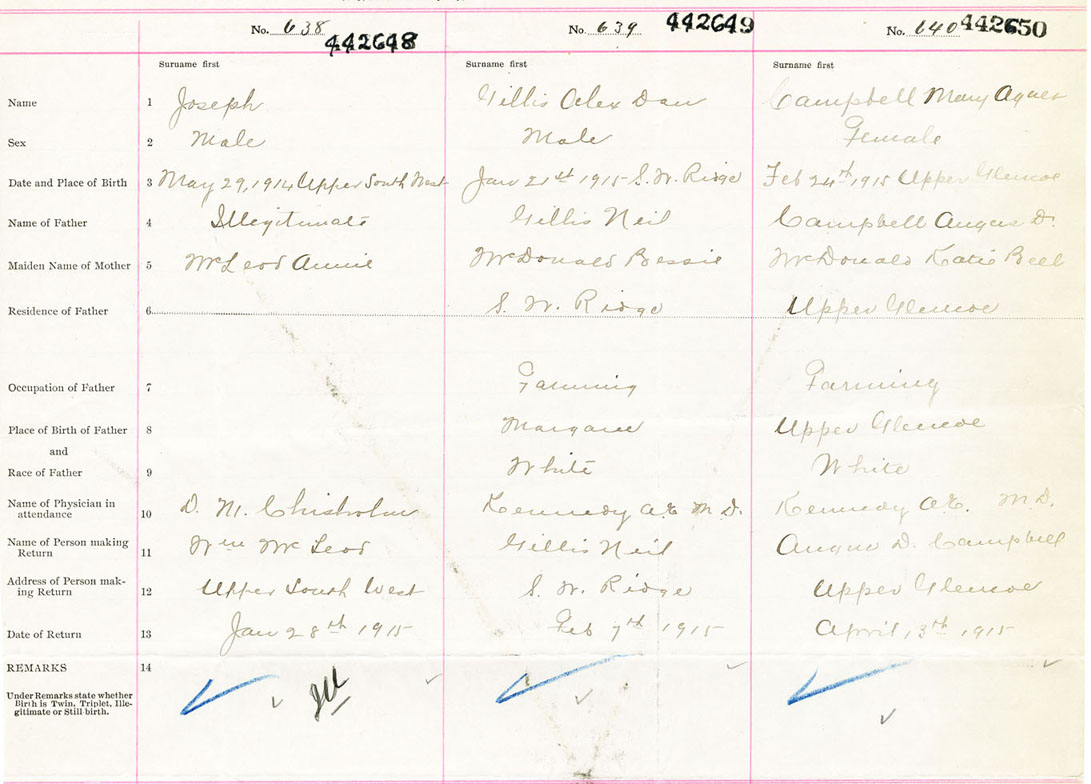 No. 638 442648 No. 639 442649 No. 640 442650
Surname first Surname first Surname first
Name 1 Joseph Gillis Alex Dan Campbell Mary Agnes
Sex 2 Male Male Female
Date and Place of Birth 3 May 29, 1914 Upper South West Jan 21st 1915 S. W. Ridge Feb 24th 1915 Upper Glencoe
Name of Father 4 Illegitimate Gillis Neil Campbell Angus D.
Maiden Name of Mother 5 McLeod Annie McDonald Bessie McDonald Katie Bell
Residence of Father 6 S. W. Ridge Upper Glencoe
Occupation of Father 7 Farming Farming
Place of Birth of Father 8 Margaree Upper Glencoe
and
Race of Father 9 White White
Name of Physician in
attendance 10 D. M. Chisholm Kennedy A.E. M.D. Kennedy A.E. M.D.
Name of Person making
Return 11 Wm McLeod Gillis Neil Angus D. Campbell
Address of Person mak-
ing Return 12 Upper South West S. W. Ridge Upper Glencoe
Date of Return 13 Jan 28th 1915 Feb 7th 1915 April 13th 1915
REMARKS 14
Ill
Under Remarks state whether
Birth is Twin, Triplet, Ille-
gitimate or Still birth.